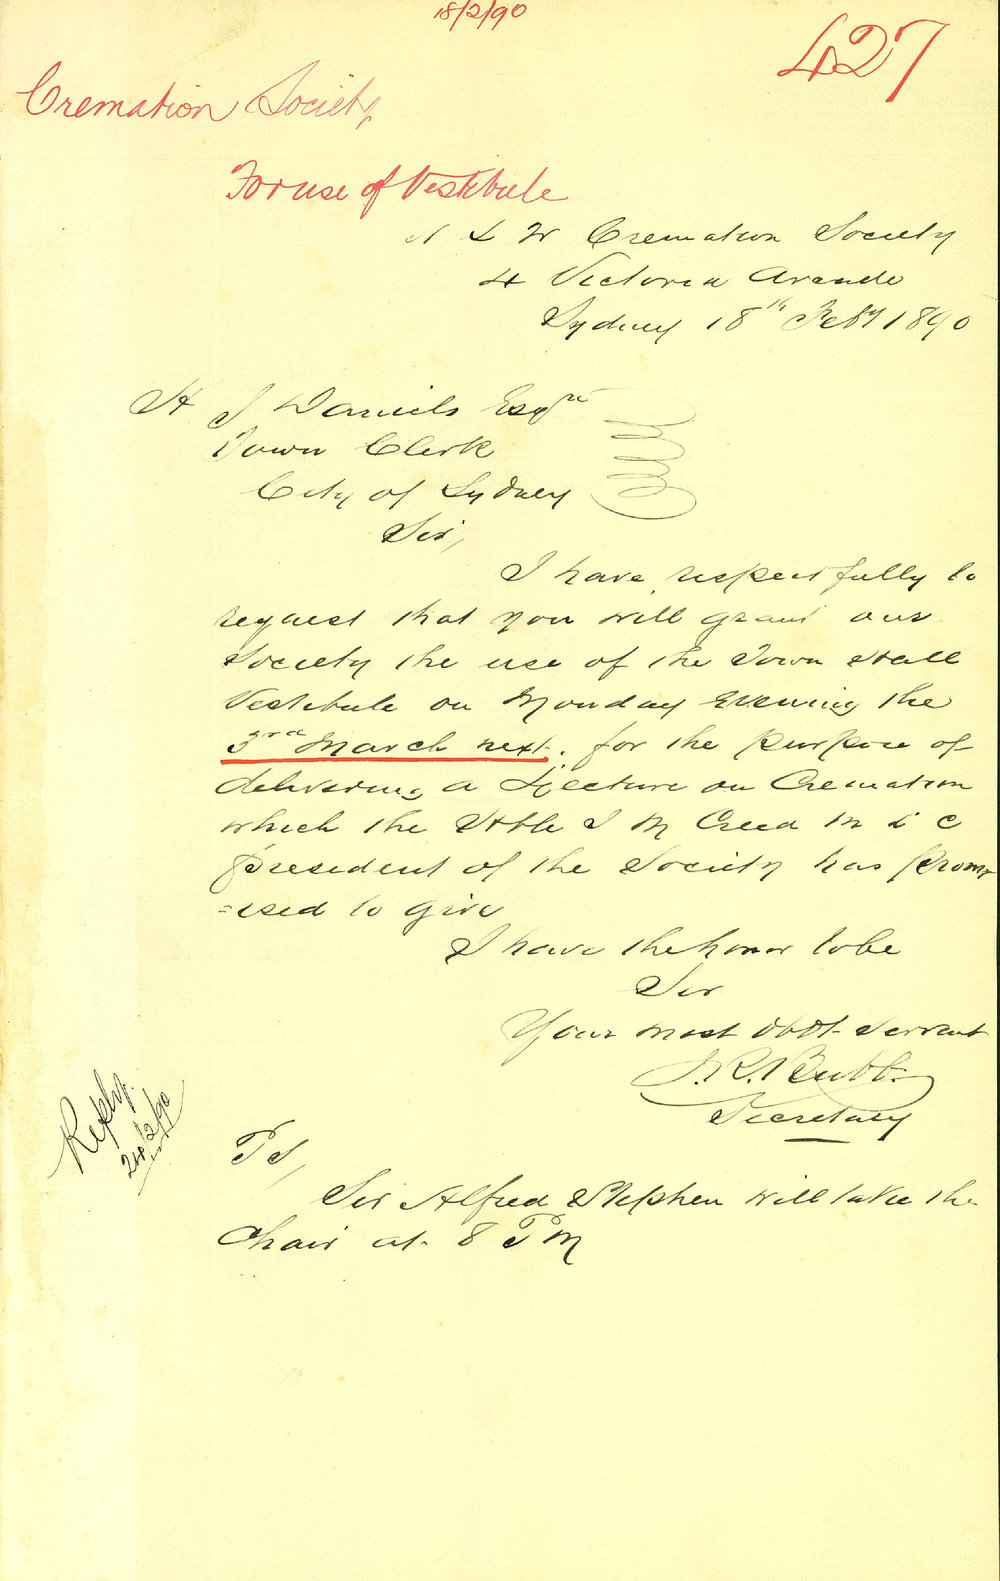 18/2/90
427
Cremation Society
For use of Vestibule
N S W Cremation Society
4 Victoria Arcade
Sydney 18th Feby 1890
H J Daniels Esqre
Town Clerk
City of Sydney
Sir,
I have respectfully to
request that you will grant our
Society the use of the Town Hall
Vestibule on Monday Evening the
3rd March next. for the purpose of
delivering a Lecture on Cremation
which the Hoble J M Creed M L C
president of the Society has prom
=ised to give
I have the honor to be
Sir
Your most obdt servant
J. R. Bubb
Secretary
Reply
24/2/90
P S,
Sir Alfred Stephen will take the
Chair at 8 P M